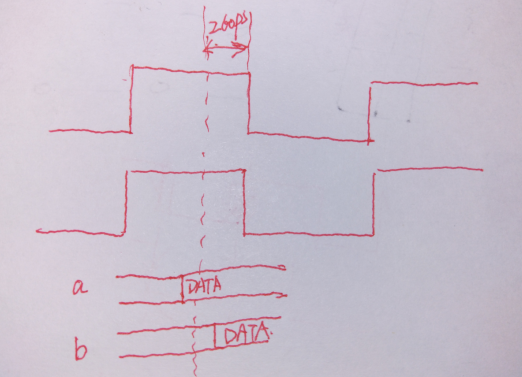 200ps
a DATA
b DATA.